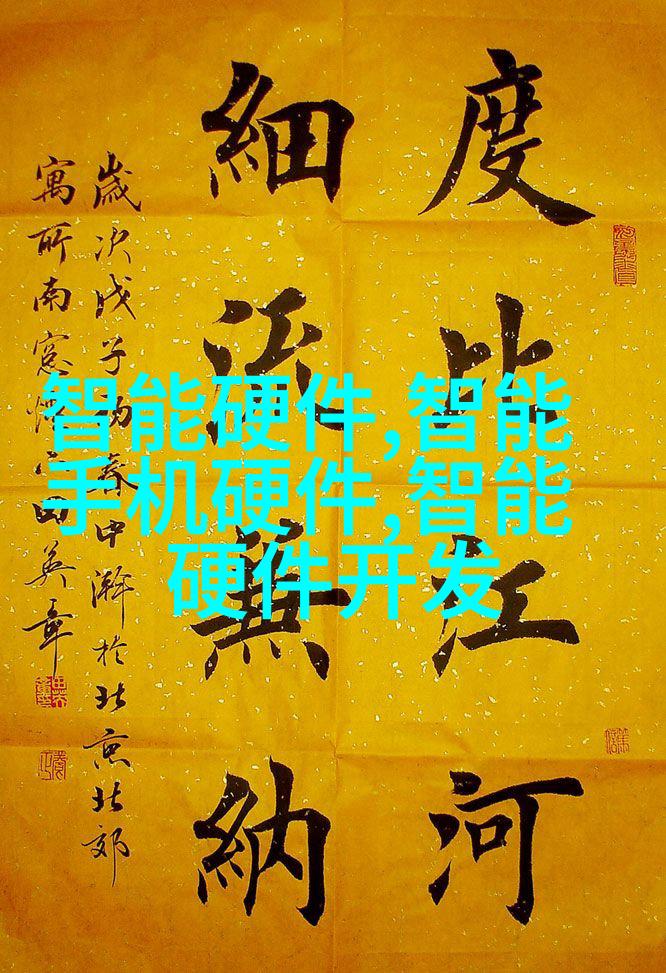 度比江河
細流兼納
歲次戊子初春中澣於北京北郊
寓所南窻田英章
智能硬件,智能
手机硬件,智能
硬件开发